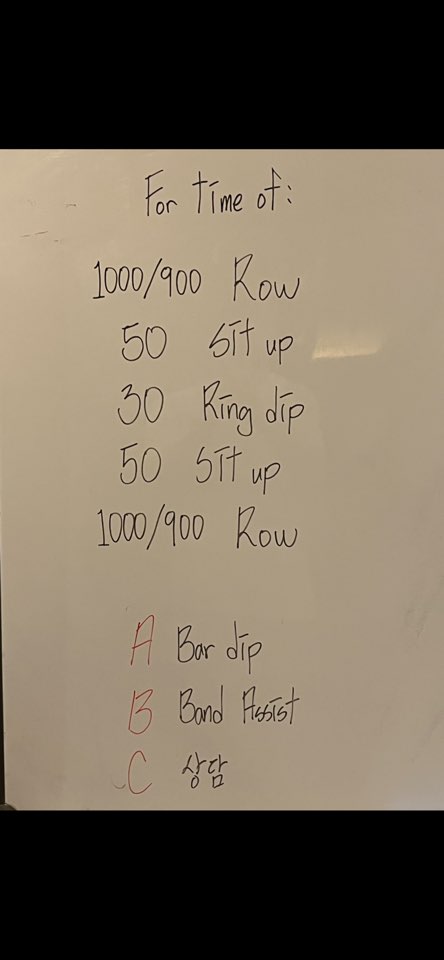 For time of:
1000/900 Row
50 Sit up
30 Ring dip
50 Sit up
1000/900 Row
A Bar dip
B Band Assist
C 상담